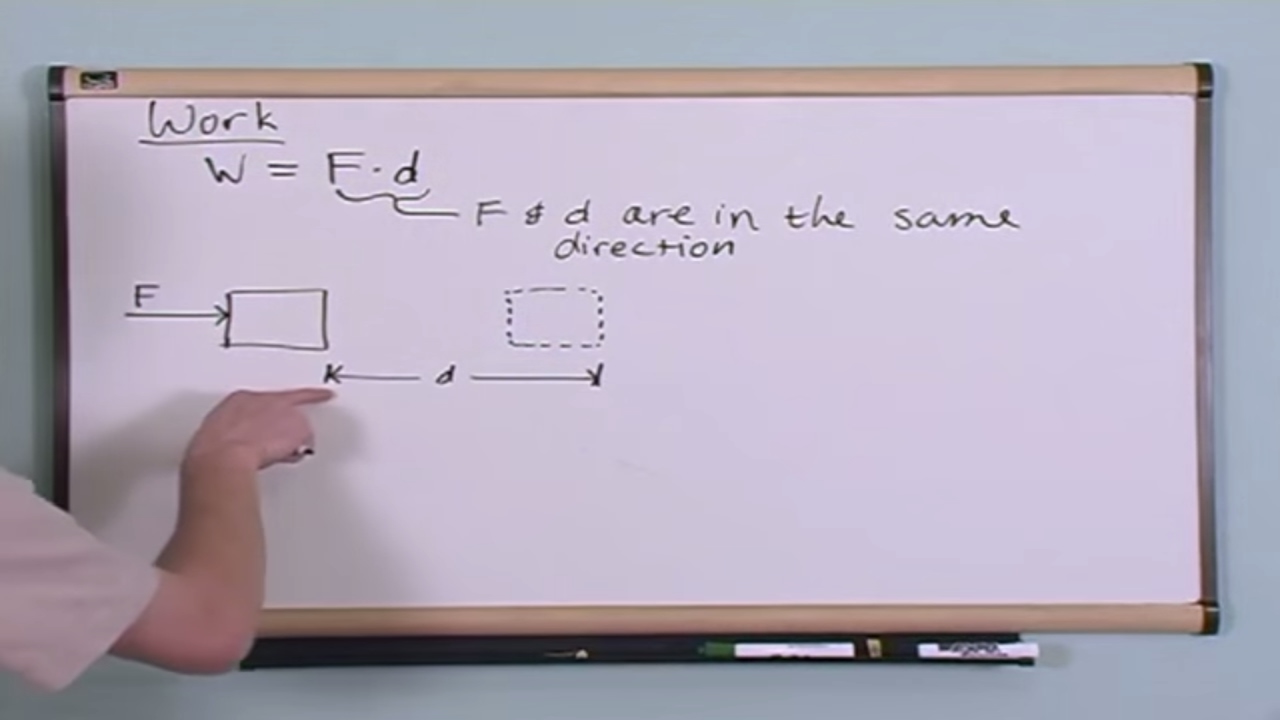 Work
W = F · d
F & d are in the same
direction
F
d